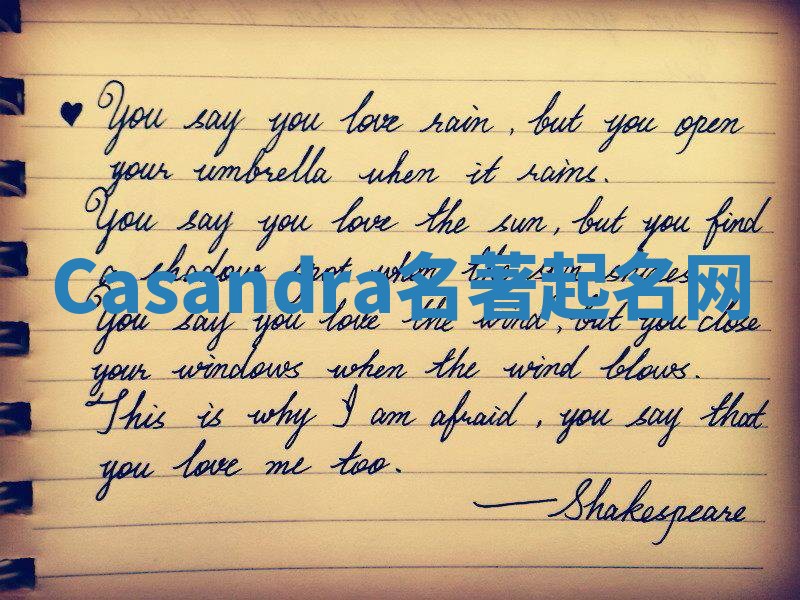 ♥ You say you love rain, but you open
your umbrella when it rains.
You say you love the sun, but you find
a shadow spot when the sun shines.
Casandra名著起名网
You say you love the wind, but you close
your windows when the wind blows.
This is why I am afraid, you say that
you love me too.
—Shakespeare